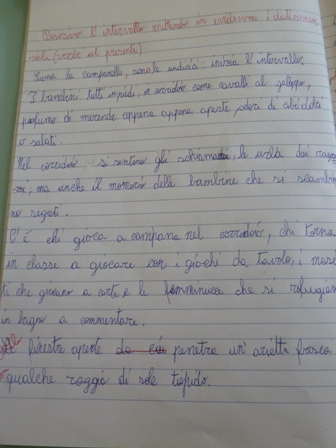 Descrivere l'intervallo mettendo in evidenza i dati senso
riali (verbo al presente)
Suona la campanella, sono le undici: inizia l'intervallo.
I bambini tutti in piedi, si scorrono come cavalli al galoppo,
profumo di merende appena appena aperte, odori di cibi dolci
o salati.
Nel corridoio si sentono gli schiamazzi, le urla dei ragaz
zi, ma anche il mormorio delle bambine che si scambia
no segreti.
C'è chi gioca a campana nel corridoio, chi torna
in classe a giocare con i giochi da tavolo, i masc
che giocano a carte e le femminucce che si rifugian
in bagno a commentare.
finestre aperte da cui penetra un'arietta fresca
qualche raggio di sole tiepido.